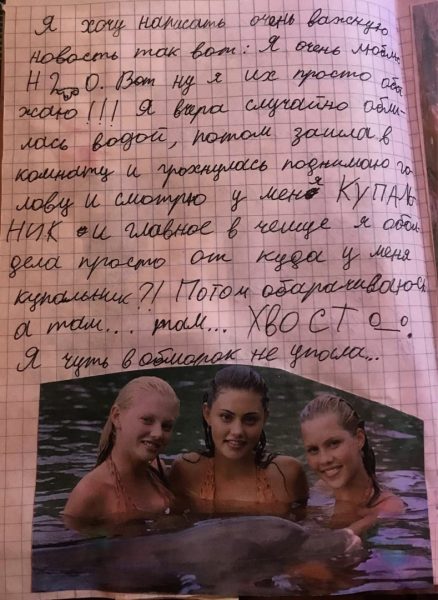 Я хочу написать очень важную
новость так вот: Я очень люблю
H2O. Вот ну я их просто оба
жаю!!! Я вчера случайно обли-
лась водой, потом зашла в
комнату и грохнулась поднимаю го-
лову и смотрю у меня КУПАЛЬ
НИК и главное в чешуе я обал
дела просто от куда у меня
купальник?! Потом обарачиваюсь
а там... там... ХВОСТ О_О.
Я чуть в обморок не упала...